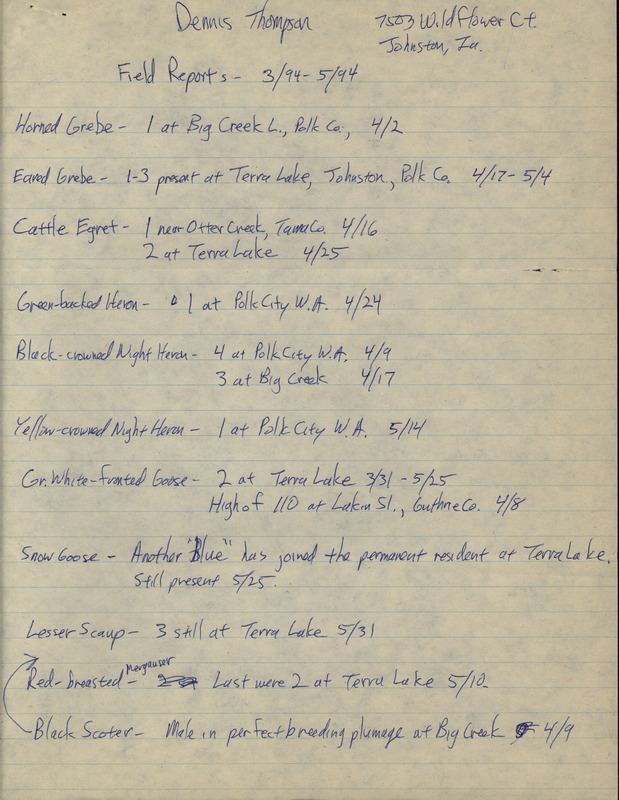 Dennis Thompson
7503 Wildflower Ct.
Johnston, Ia.
Field Reports - 3/94 - 5/94
Horned Grebe - 1 at Big Creek L., Polk Co., 4/2
Eared Grebe - 1-3 present at Terra Lake, Johnston, Polk Co. 4/17 - 5/4
Cattle Egret - 1 near Otter Creek, Tama Co. 4/16
2 at Terra Lake 4/25
Green-backed Heron - 1 at Polk City W.A. 4/24
Black-crowned Night Heron - 4 at Polk City W.A. 4/9
3 at Big Creek 4/17
Yellow-crowned Night Heron - 1 at Polk City W.A. 5/14
Gr. White-fronted Goose - 2 at Terra Lake 3/31 - 5/25
High of 110 at Lakin Sl., Guthrie Co. 4/8
Snow Goose - Another "Blue" has joined the permanent resident at Terra Lake.
Still present 5/25.
Lesser Scaup - 3 still at Terra Lake 5/31
Red-breasted Merganser - Last were 2 at Terra Lake 5/10
Black Scoter - Male in perfect breeding plumage at Big Creek 4/9